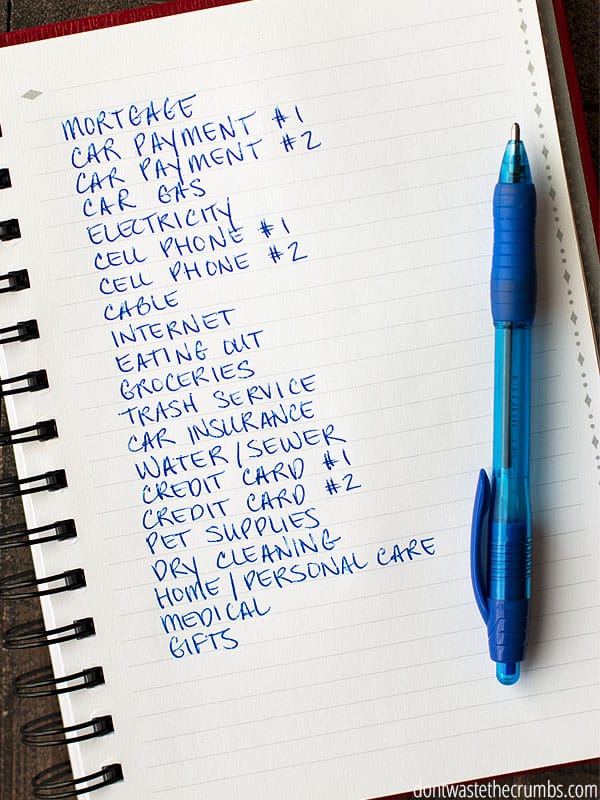 MORTGAGE
CAR PAYMENT #1
CAR PAYMENT #2
CAR GAS
ELECTRICITY
CELL PHONE #1
CELL PHONE #2
CABLE
INTERNET
EATING OUT
GROCERIES
TRASH SERVICE
CAR INSURANCE
WATER/SEWER
CREDIT CARD #1
CREDIT CARD #2
PET SUPPLIES
DRY CLEANING
HOME/PERSONAL CARE
MEDICAL
GIFTS
dontwastethecrumbs.com